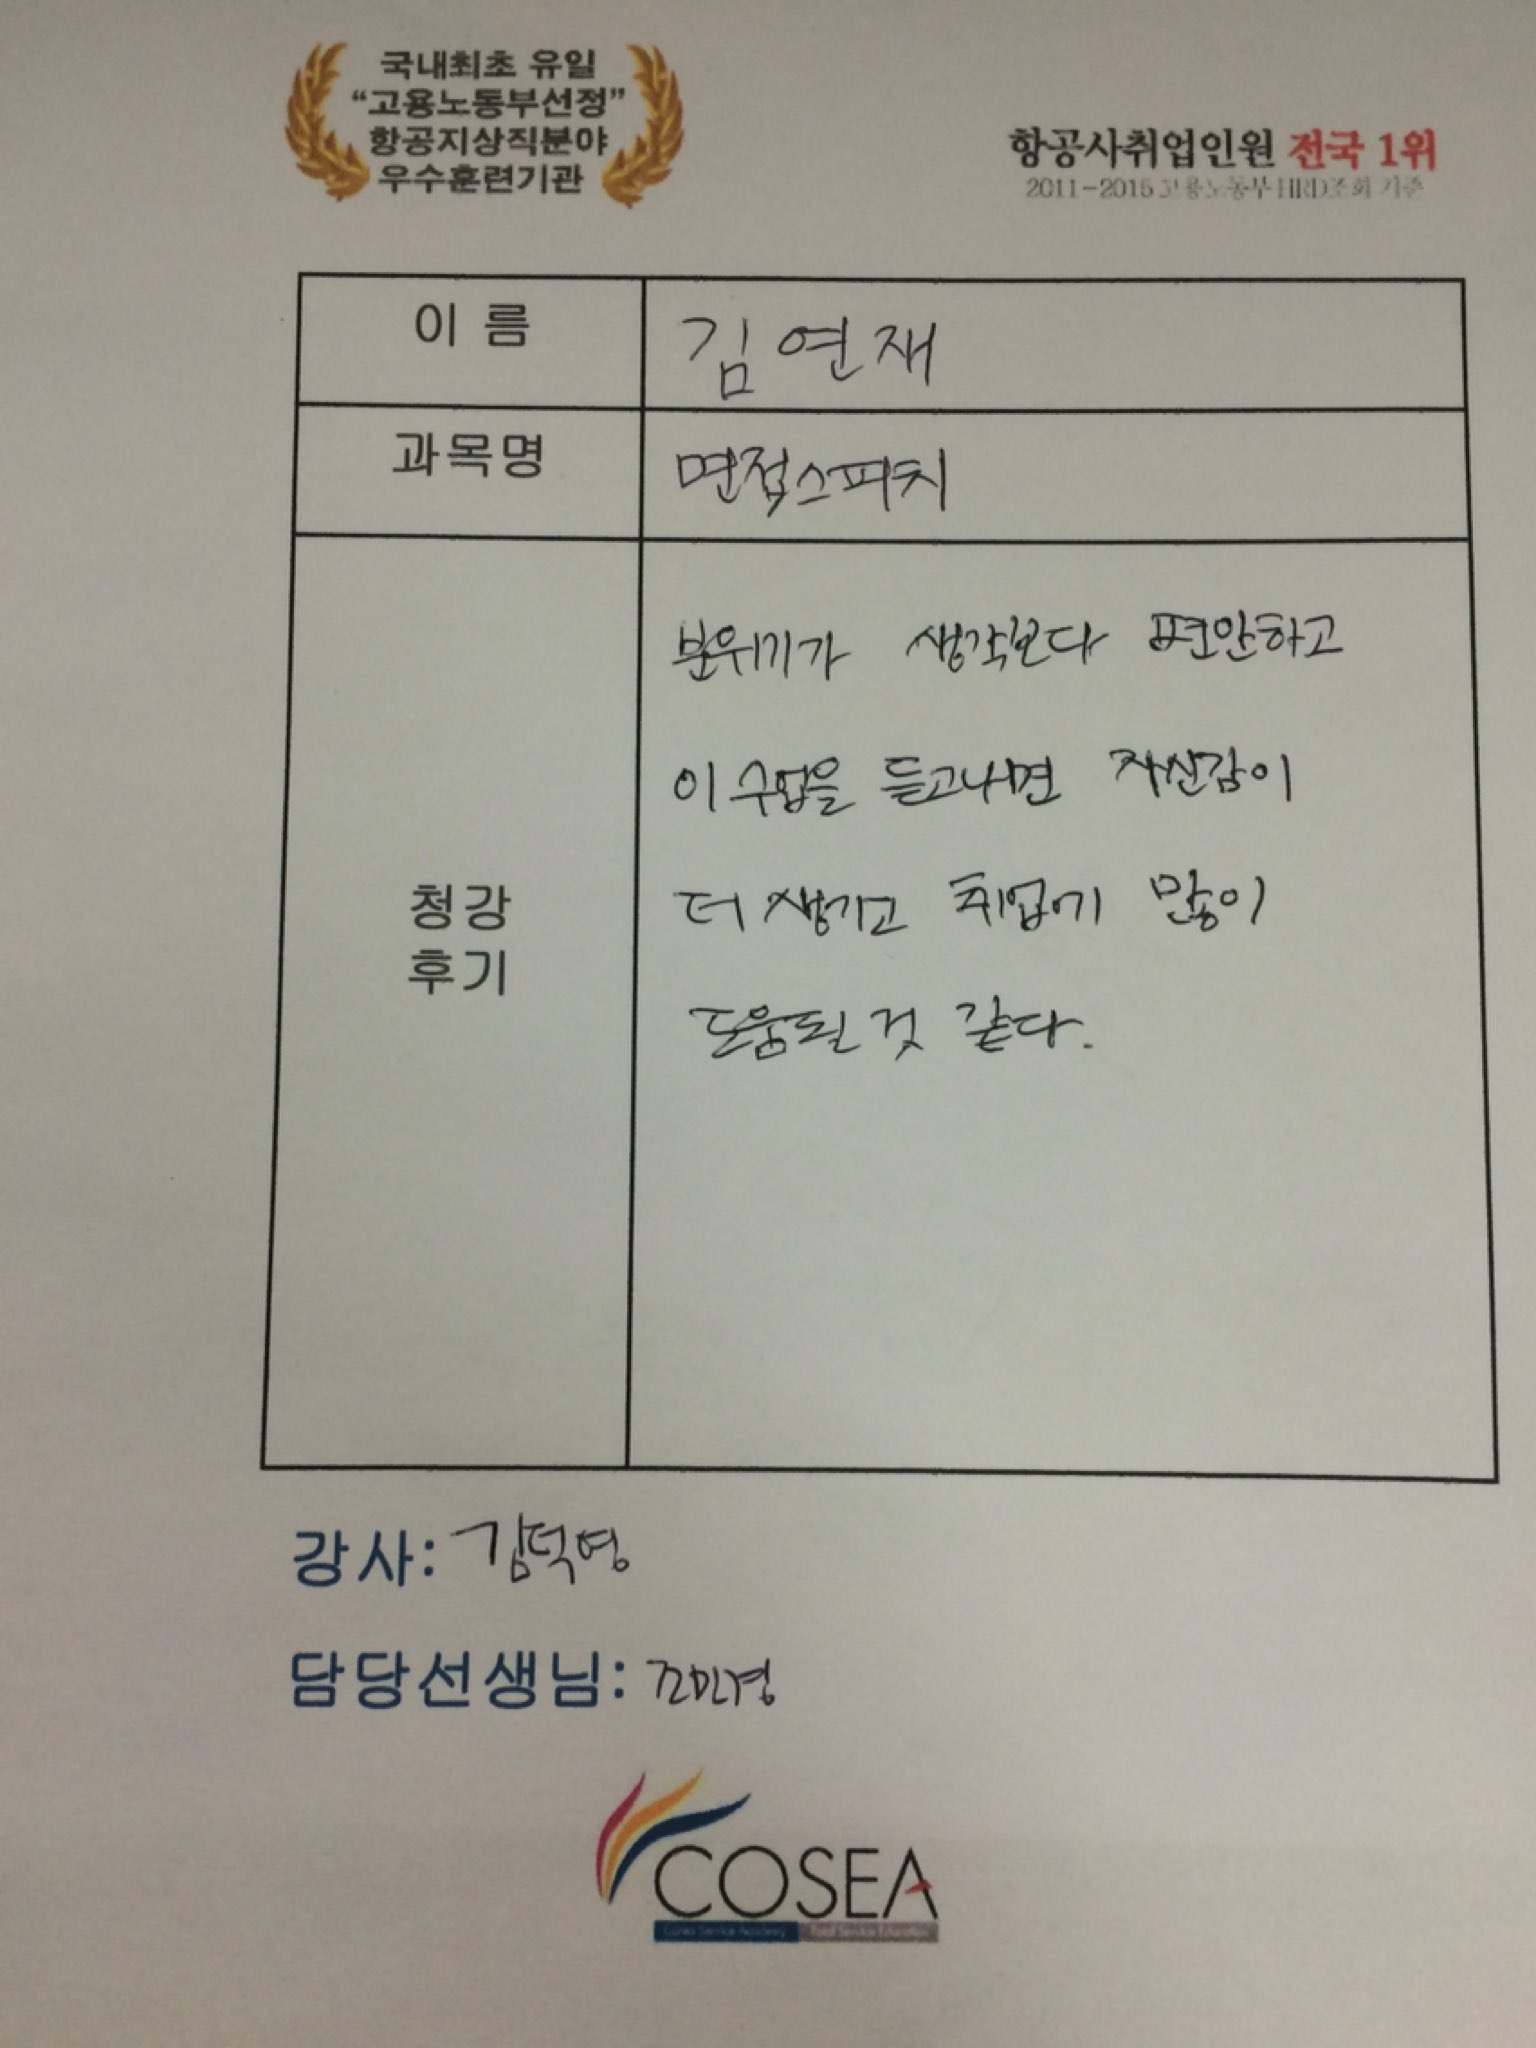 국내최초 유일
“고용노동부선정”
항공지상직분야
우수훈련기관
항공사취업인원 전국 1위
2011-2015 고용노동부 HRD조회 기준
이 름
김연재
과목명
면접스피치
청강
후기
분위기가 생각보다 편안하고
이 수업을 듣고나면 자신감이
더 생기고 취업에 많이
도움될 것 같다.
강사: 김덕영
담당선생님: 조민경
COSEA
Korea Service Academy Total Service Education